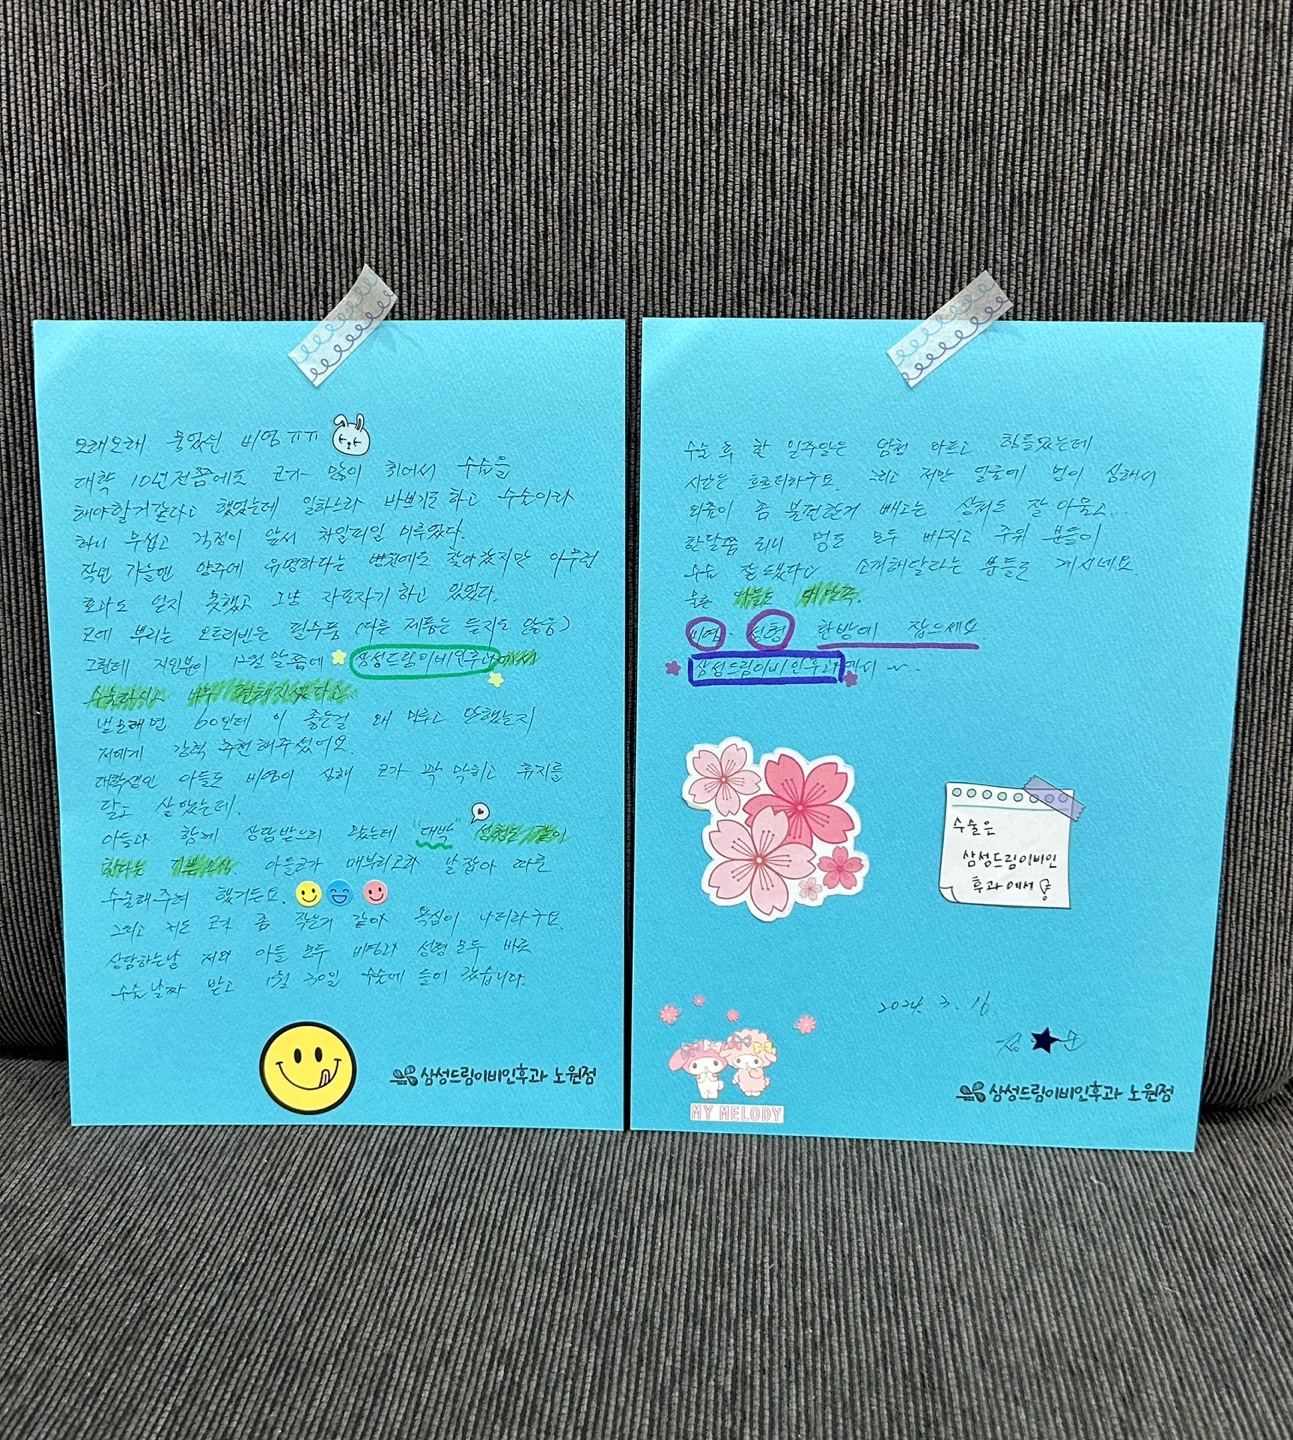 오래오래 묵었던 비염 ㅠㅠ
대략 10년 전쯤에도 코가 많이 휘어서 수술을
해야할거같다고 했었는데 일하느라 바쁘기도 하고 수술이라
하니 무섭고 걱정이 앞서 차일피일 미루었다.
작년 가을엔 양주에 유명하다는 병원에도 찾아갔지만 아무런
효과도 얻지 못했고 그냥 자포자기 하고 있었다.
코에 뿌리는 오트리빈은 필수품 (다른 제품은 듣지도 않음)
그런데 지인분이 12월 말쯤에 삼성드림이비인후과에서
수술하시고 너무 편해지셨다고
낼모래면 60인데 이 좋은걸 왜 미루고 안했는지
저에게 강력 추천해주셨어요.
대학생인 아들도 비염이 심해 코가 꽉 막히고 휴지를
달고 살았는데.
아들과 함께 상담받으러 왔는데 "대박" 성형도 같이
한다는 기쁜소식. 아들코가 매부리코라 날잡아 따로
수술해주려 했거든요.
그리고 저도 코가 좀 작은거 같아 욕심이 나더라구요.
상담하는날 저와 아들 모두 비염과 성형 모두 바로
수술날짜 받고 1월 30일 수술에 들어 갔습니다.
삼성드림이비인후과 노원점
수술 후 한 일주일은 엄청 아프고 힘들었는데
시간은 흐르더라구요. 그리고 저만 얼굴에 멍이 심해서
외출이 좀 불편한거 빼고는 상처도 잘 아물고...
한달쯤 되니 멍도 모두 빠지고 주위 분들이
수술 잘 됐다고 소개해달라는 분들도 계시네요.
물론 아들도 대만족.
비염. 성형 한방에 잡으세요.
삼성드림이비인후과에서 ~
수술은
삼성드림이비인
후과에서
2024. 3. 16.
정★순
MY MELODY
삼성드림이비인후과 노원점